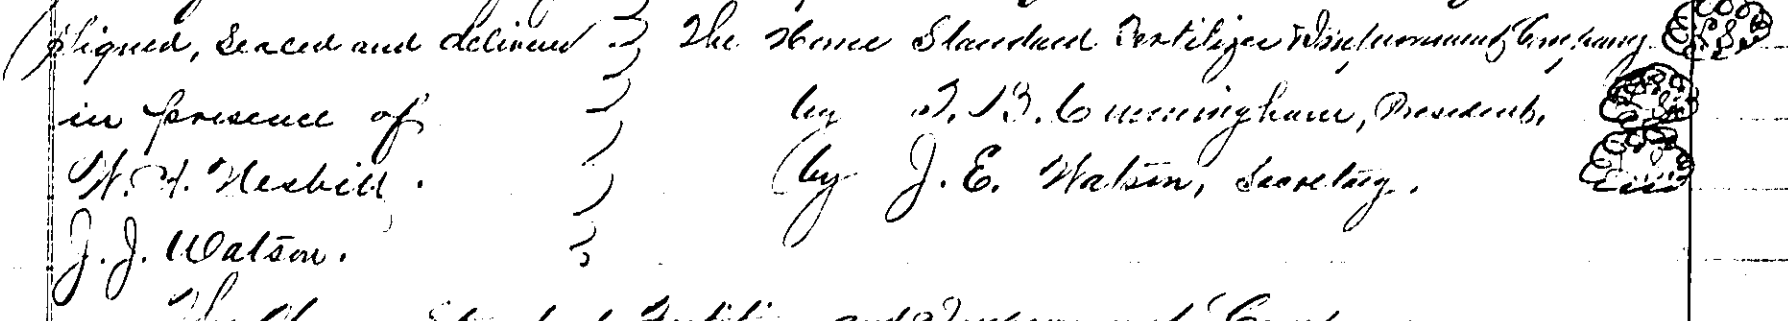 Signed, Sealed and delivered } The Home Standard Fertilizer & Improvement Company L.S.
in presence of } by T. B. Cunningham, President. L.S.
W. H. Nesbitt. } by J. E. Watson, Secretary.
J. J. Watson. }
Standard